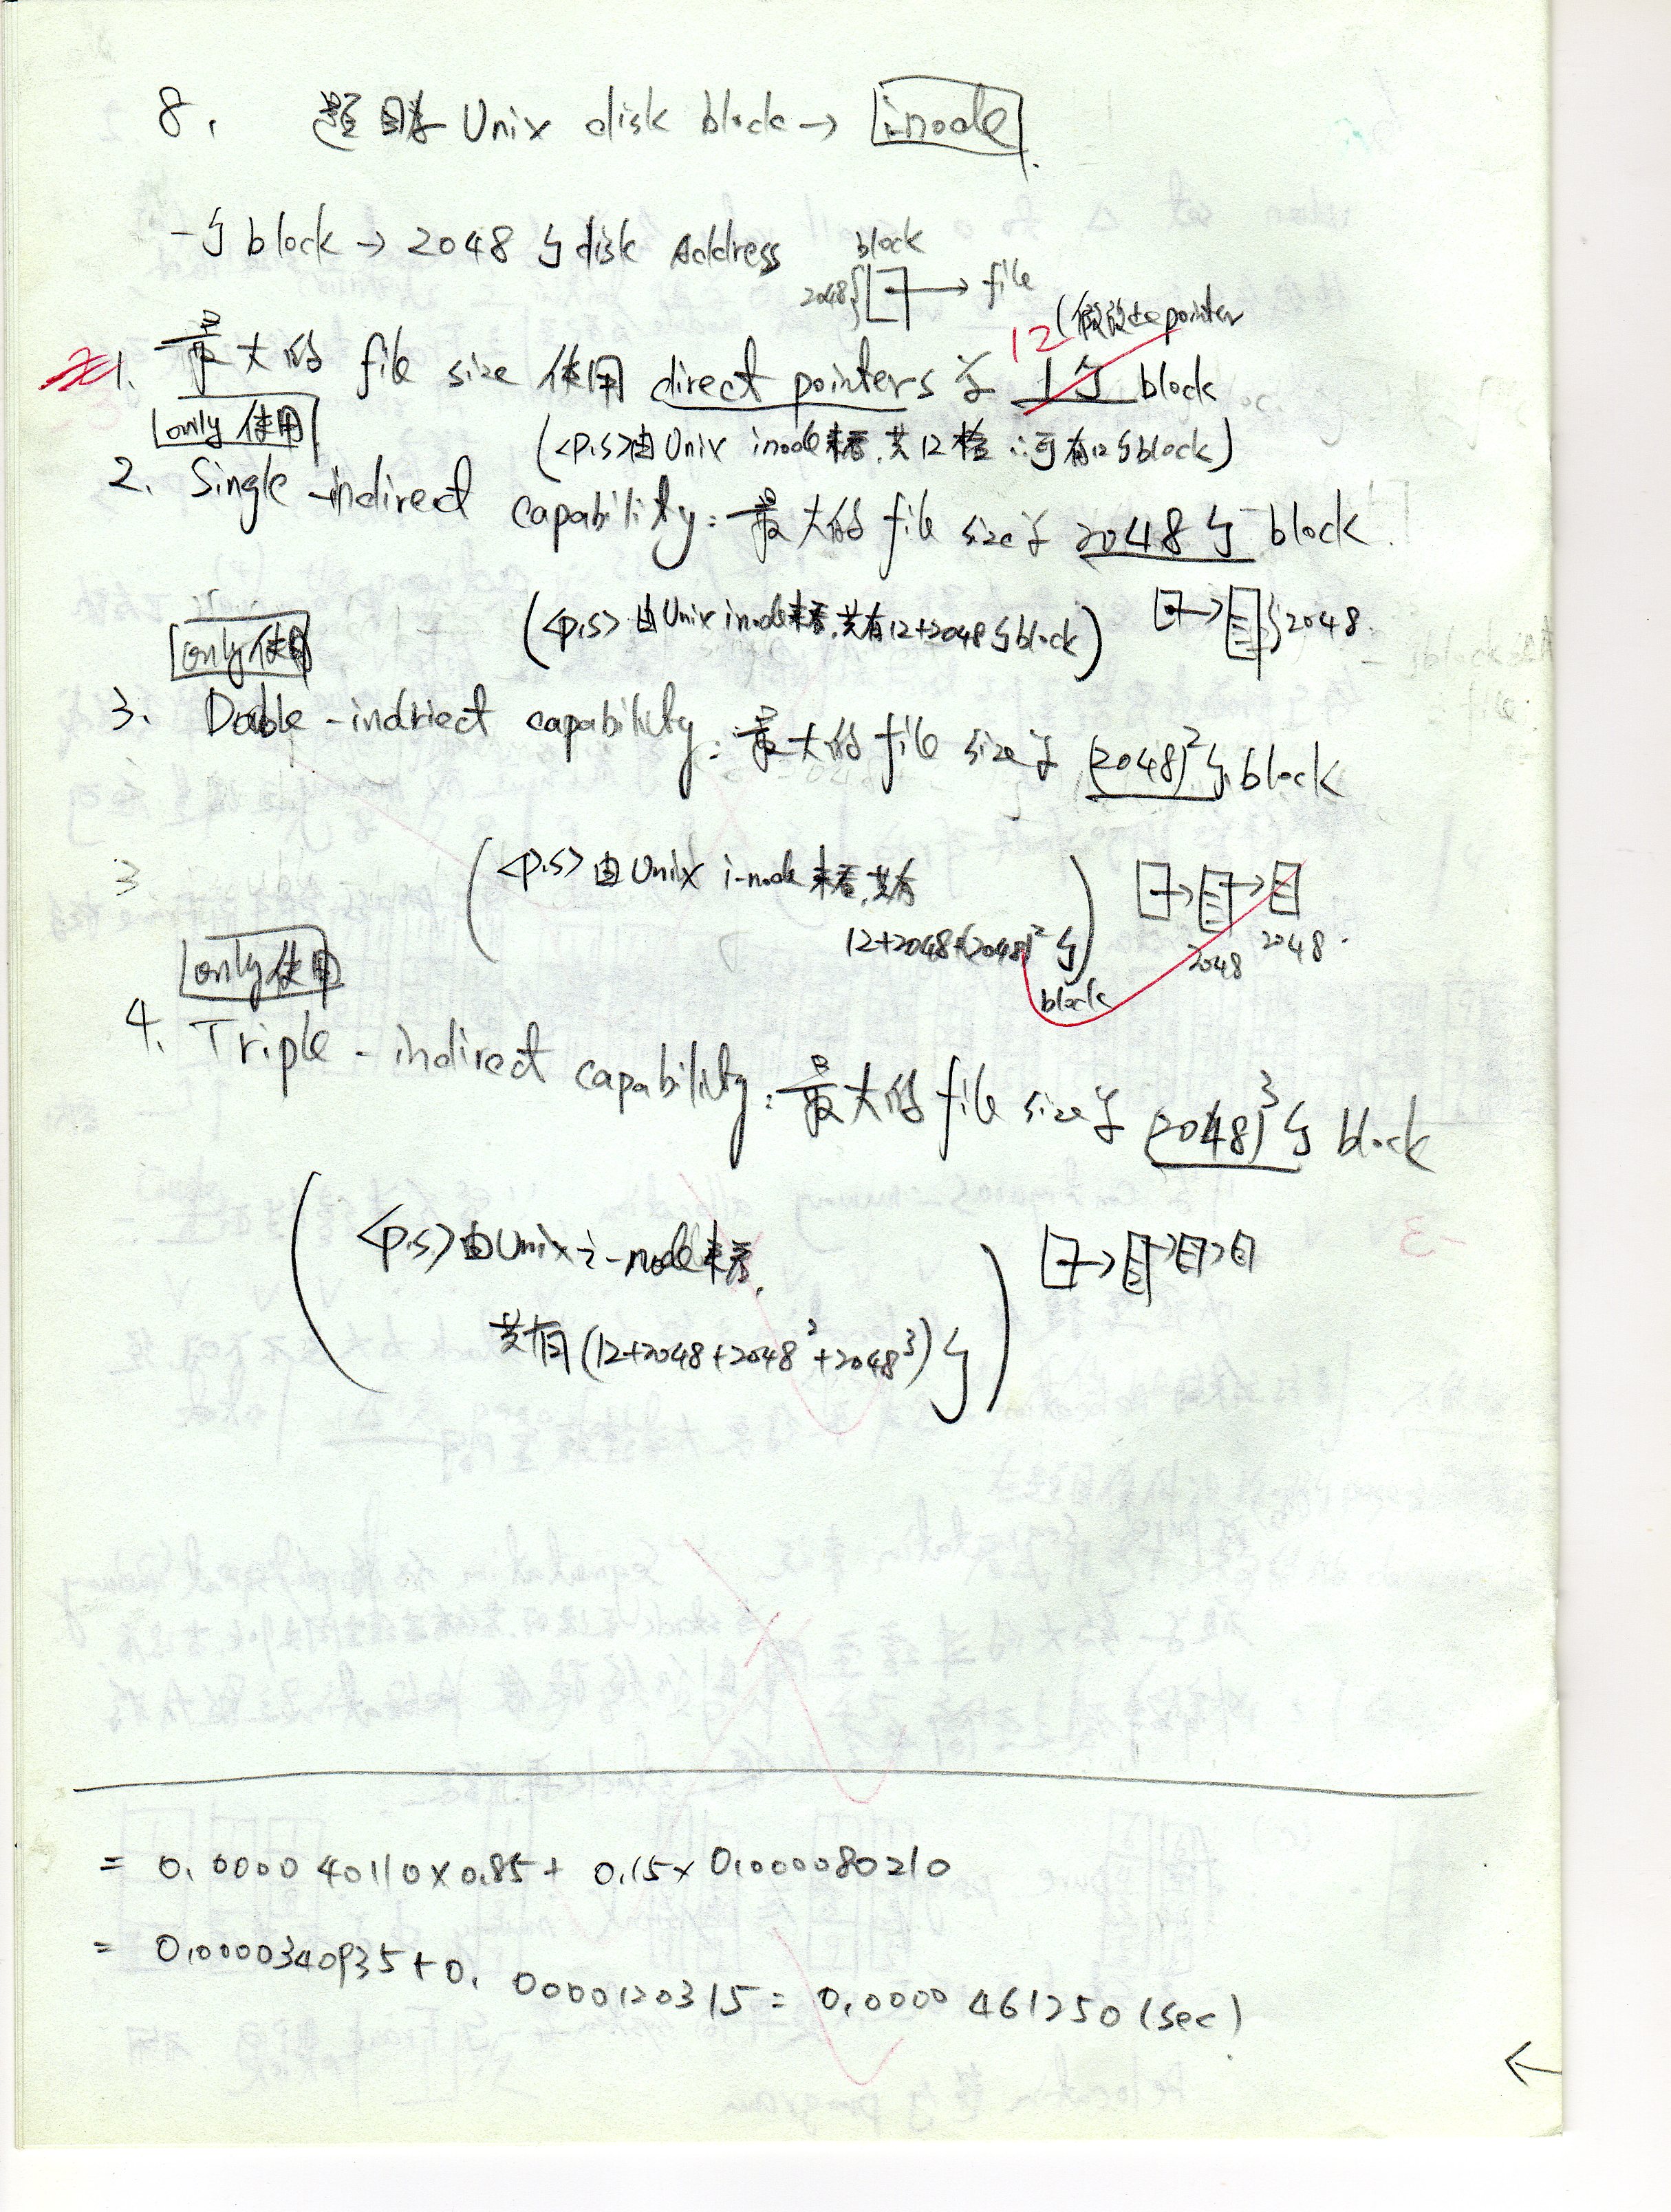 8. 題目為 Unix disk block → inode
一個 block → 2048 個 disk Address
block
2048 → file
12 (假設 pointer
1. 最大的 file size 使用 direct pointers 為 1個 block
only 使用
(<p.s>由 Unix inode 來看,共12格 ∴可有12個block)
2. Single-indirect capability: 最大的 file size 為 2048 個 block.
only 使用
(<p.s> 由 Unix inode來看,共有12+2048個block) → 2048.
3. Double-indriect capability: 最大的 file size 為 (2048)² 個 block
3
(<p.s> 由 Unix i-node 來看,共有
12+2048+(2048)² 個 block)
2048 2048.
only 使用
4. Triple-indirect capability: 最大的 file size 為 (2048)³ 個 block
(<p.s>由 Unix i-node 來看,
共有(12+2048+2048²+2048³)個)
= 0.000040110×0.85+ 0.15×0.000080210
= 0.0000340935+0.0000120315 = 0.0000461250 (sec)
←